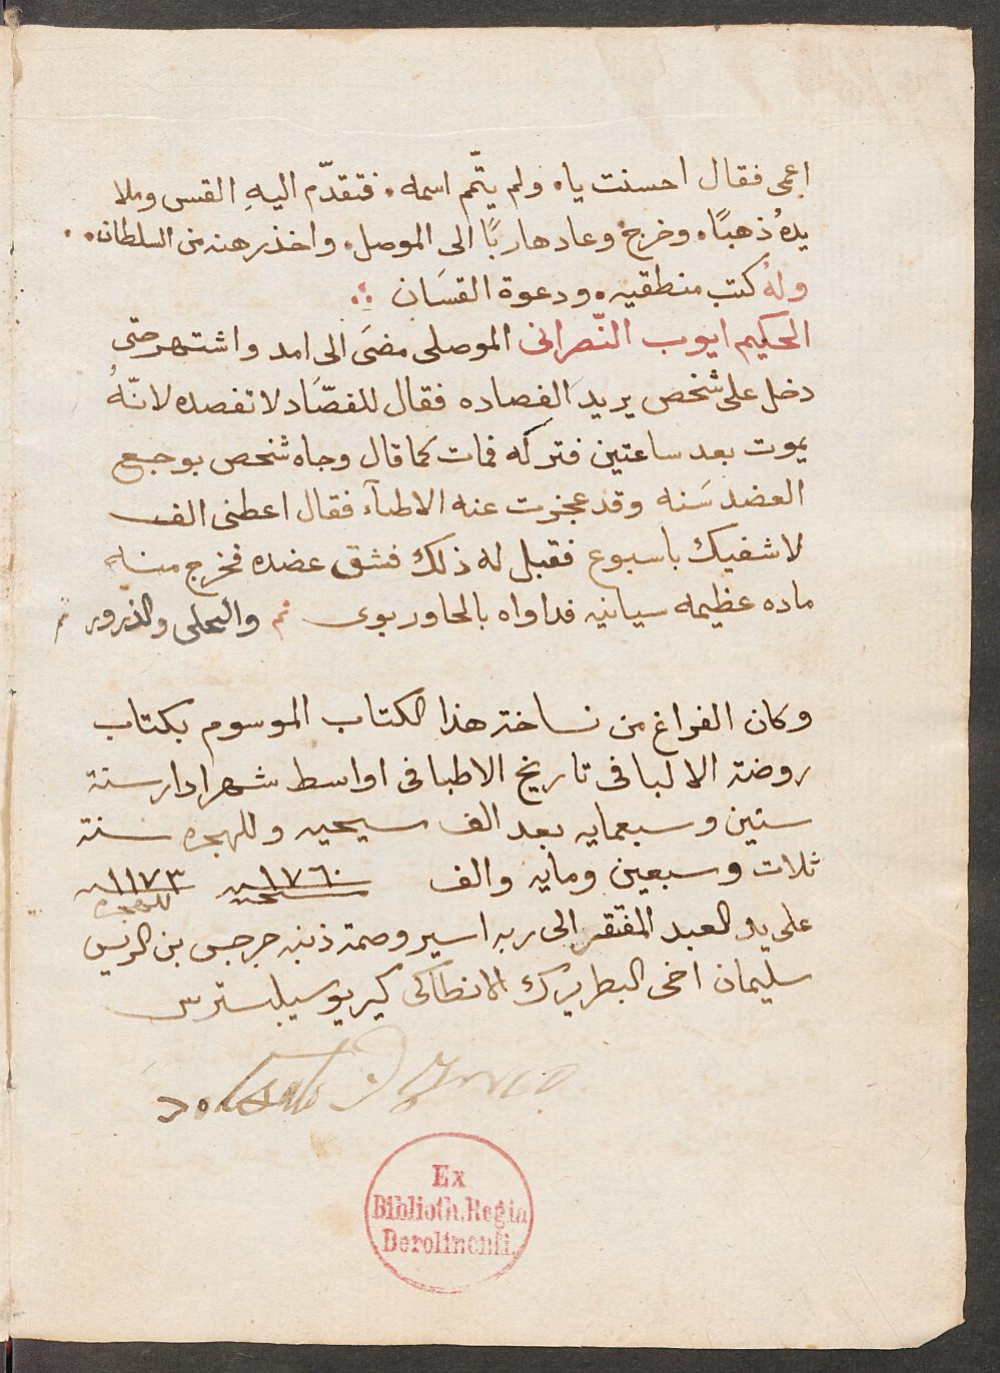 اعمى فقال احسنت ياه ولم يتّم اسمه. فتقدّم اليهِ القس وملا
يدهُ ذهبًا. وخرج وعاد هاربًا الى الموصل. واخذ رهنه من السلطان.
ولهُ كتب منطقيه. ودعوة القسَان
الحكيم ايوب النّصرانى الموصلى مضَى الى امد واشتهر حتى
دخل على شخص يريد الفصاده فقال للفصّاد لا تفصده لانّهُ
يموت بعد ساعتين فتركه فمات كما قال وجاه شخص بوجع
العضد سَنه وقد عجزت عنه الاطبآء فقال اعطنى الف
لاشفيك باسبوع فقبل له ذلك فشق عضده فخرج منه
ماده عظيمه سيانيه فداواه بالحاور بوى تم والحلى والذرور تم
وكان الفراغ من نساخة هذا الكتاب الموسوم بكتاب
روضة الالبا فى تاريخ الاطبا فى اواسط شهر ادار سنة
ستين وسبعمايه بعد الف مسيحيه وللهجره سنة
ثلاث وسبعين ومايه والف ١٧٦٠ مسيحيه ١١٧٣ للهجره
على يد العبد المفتقر الى ربه اسير وصمة ذنبه جرجس بن الريس
سليمان اخى البطريرك الانطاكى كيريو سيلبسترس
Ex
Biblioth. Regia
Berolinensi.